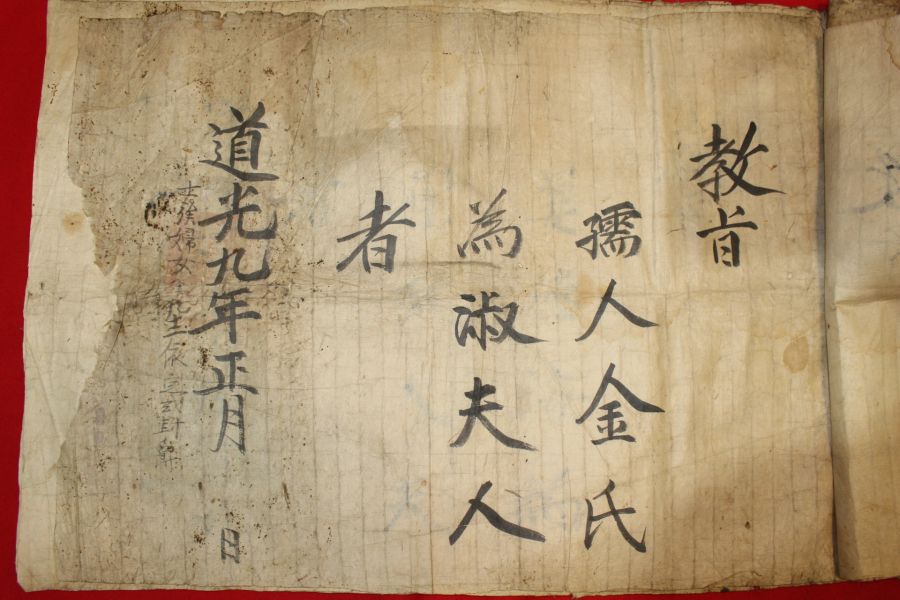 教旨
孺人金氏
為淑夫人
者
道光九年正月 日
士族婦女